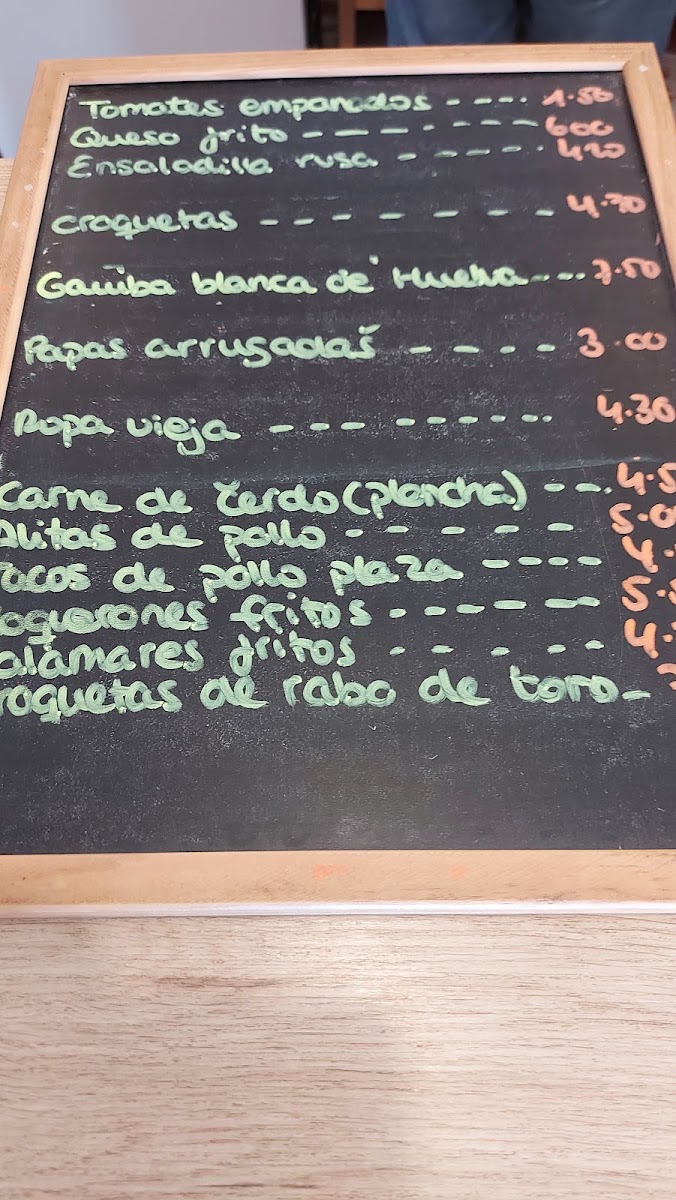 Tomates empanados - - - - 1.50
Queso frito - - - - - - - - 600
Ensaladilla rusa - - - - - 420
croquetas - - - - - - - 4.30
Gamba blanca de Huelva - - - 7.50
Papas arrugadas - - - - 3.00
Ropa vieja - - - - - - - - - 4.30
Carne de Cerdo (plancha) - - - 4.5
Alitas de pollo - - - - - 5.0
Tacos de pollo plaza - - - - 4.
oquerones fritos - - - - - 5.
alamares fritos - - - - - 4.
roquetas de rabo de toro -